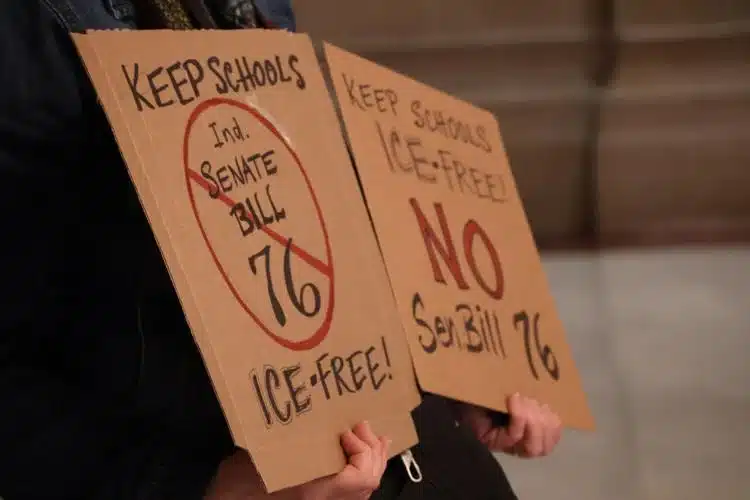 KEEP SCHOOLS
Ind.
SENATE
BILL
76
ICE-FREE!
KEEP SCHOOLS
ICE-FREE!
NO
Sen Bill 76